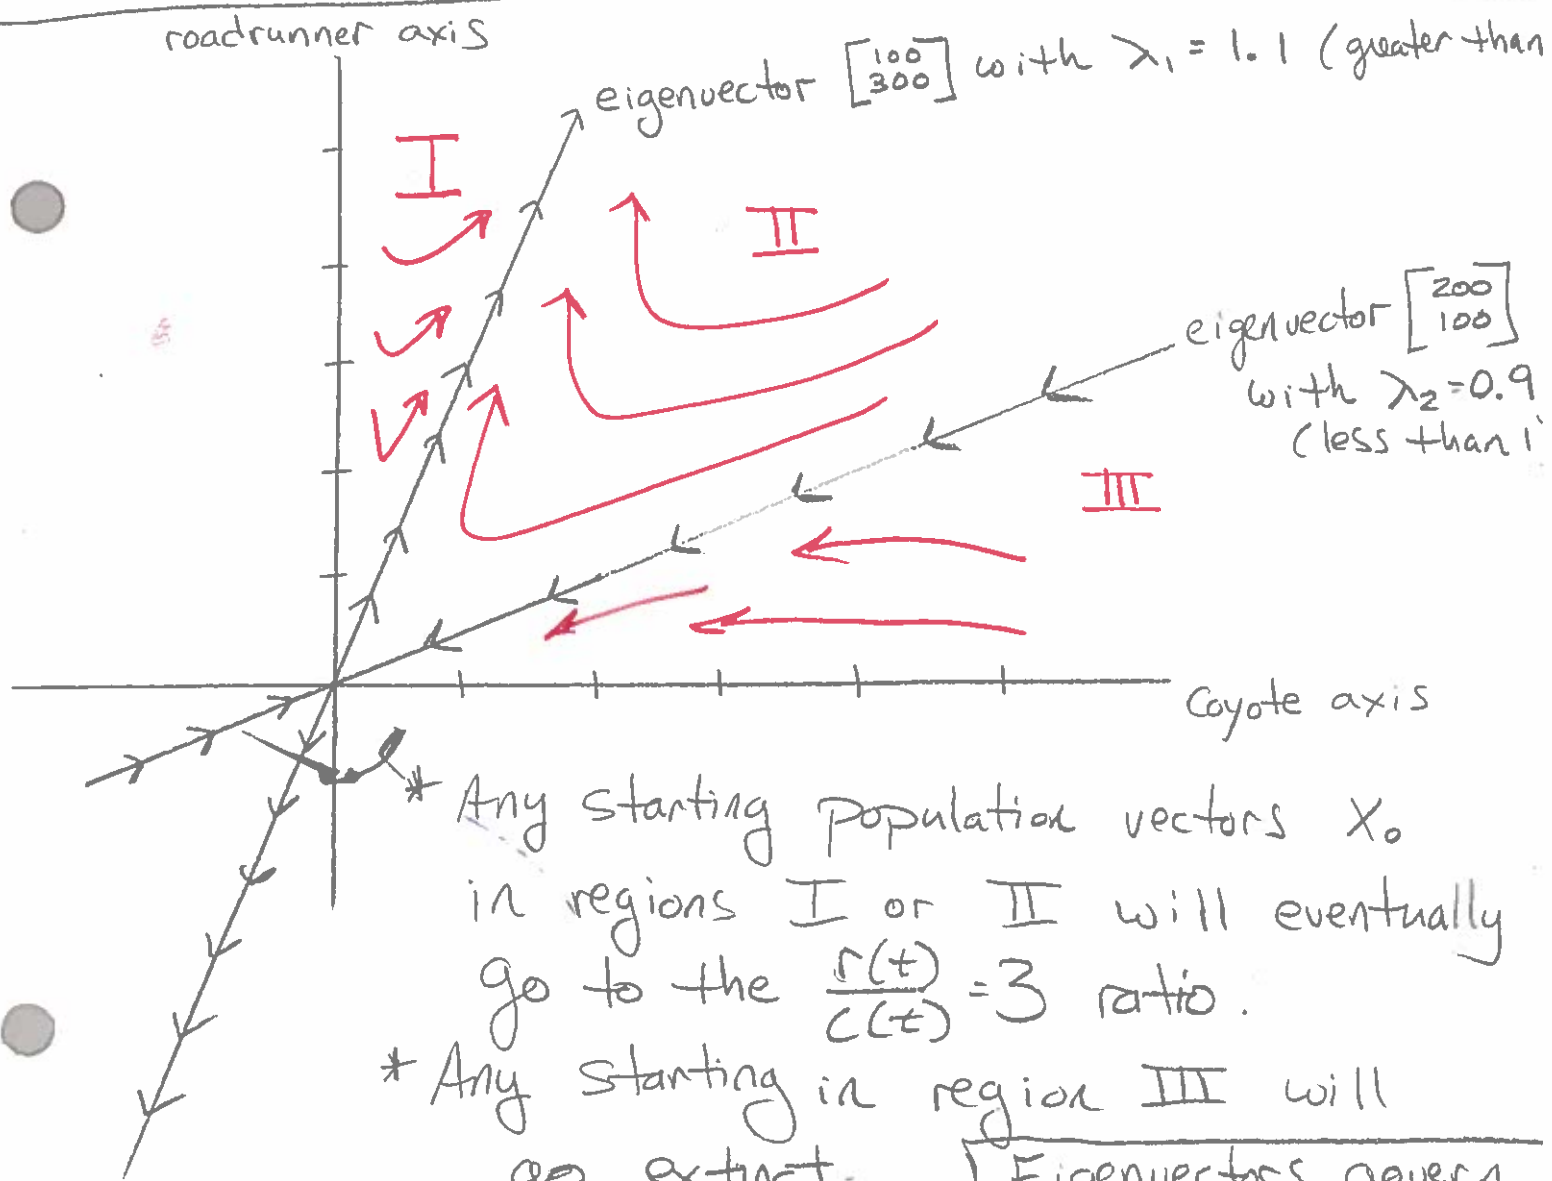 roadrunner axis
eigenvector [100 300] with λ₁ = 1.1 (greater than
I
II
eigenvector [200 100]
with λ₂=0.9
(less than 1
III
Coyote axis
* Any starting population vectors X₀
in regions I or II will eventually
go to the r(t)/c(t) = 3 ratio.
* Any starting in region III will
go extinct.
Eigenvectors govern